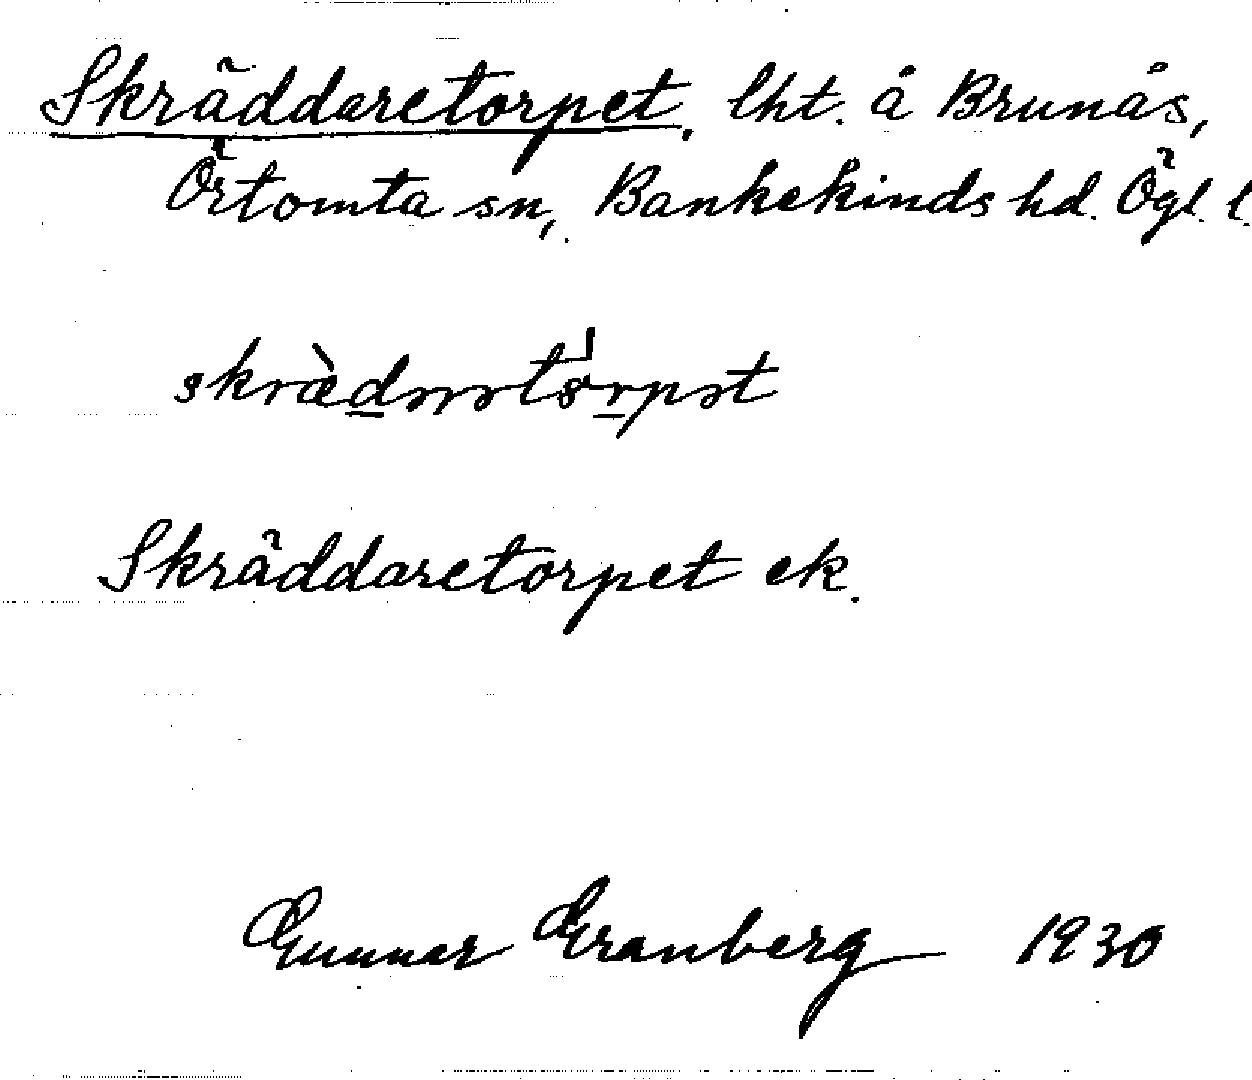 Skräddaretorpet, lht. å Brunås,
Örtomta sn, Bankekinds hd. Ögl. l.
Skräddaretorpet ek.
Gunnar Granberg 1930